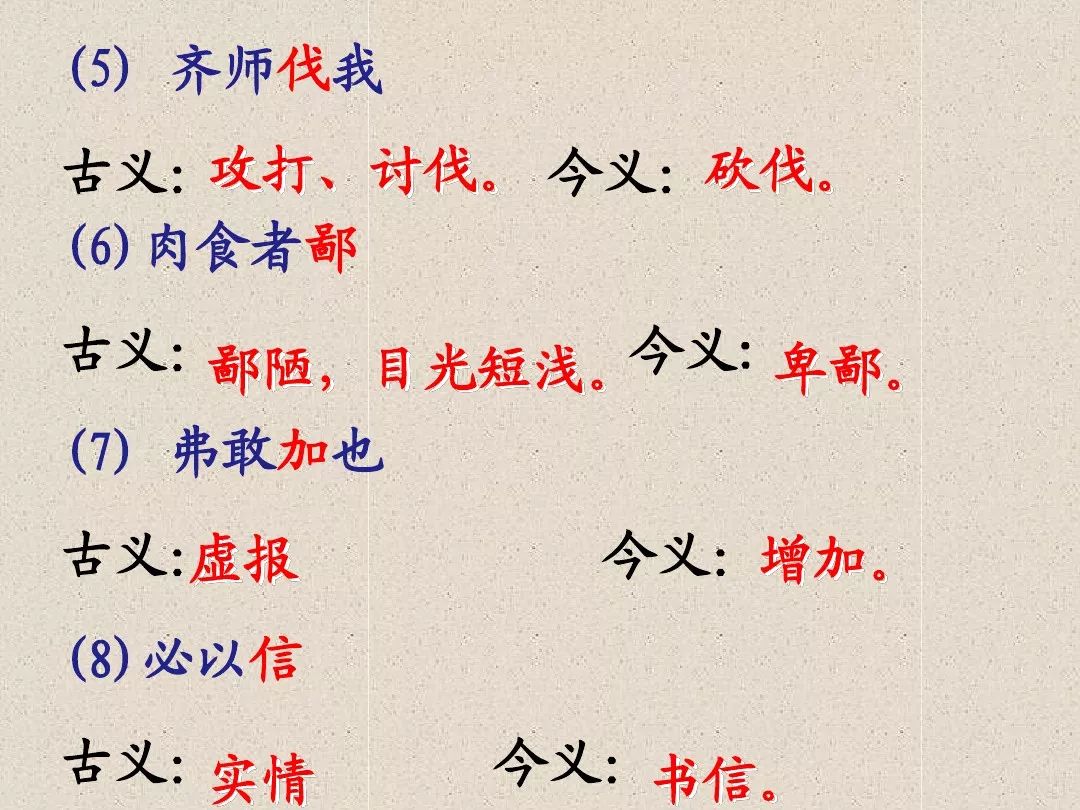 (5) 齐师伐我
古义：攻打、讨伐。 今义：砍伐。
(6)肉食者鄙
古义：鄙陋，目光短浅。今义：卑鄙。
(7) 弗敢加也
古义:虚报 今义：增加。
(8)必以信
古义：实情 今义：书信。